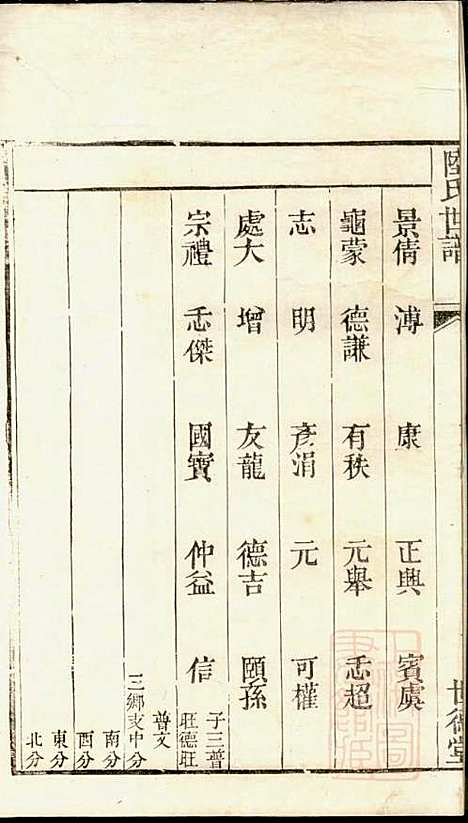 陸氏世譜
世德堂
景倩 溥 康 正興 賓虞
龜蒙 德謙 有秩 元舉 忞超
志 明 彥涓 元 可權
處大 增 友龍 德吉 頤孫
宗禮 忞傑 國寶 仲益 信
子三普
旺德旺
普文
三鄉支中分
南分
西分
東分
北分